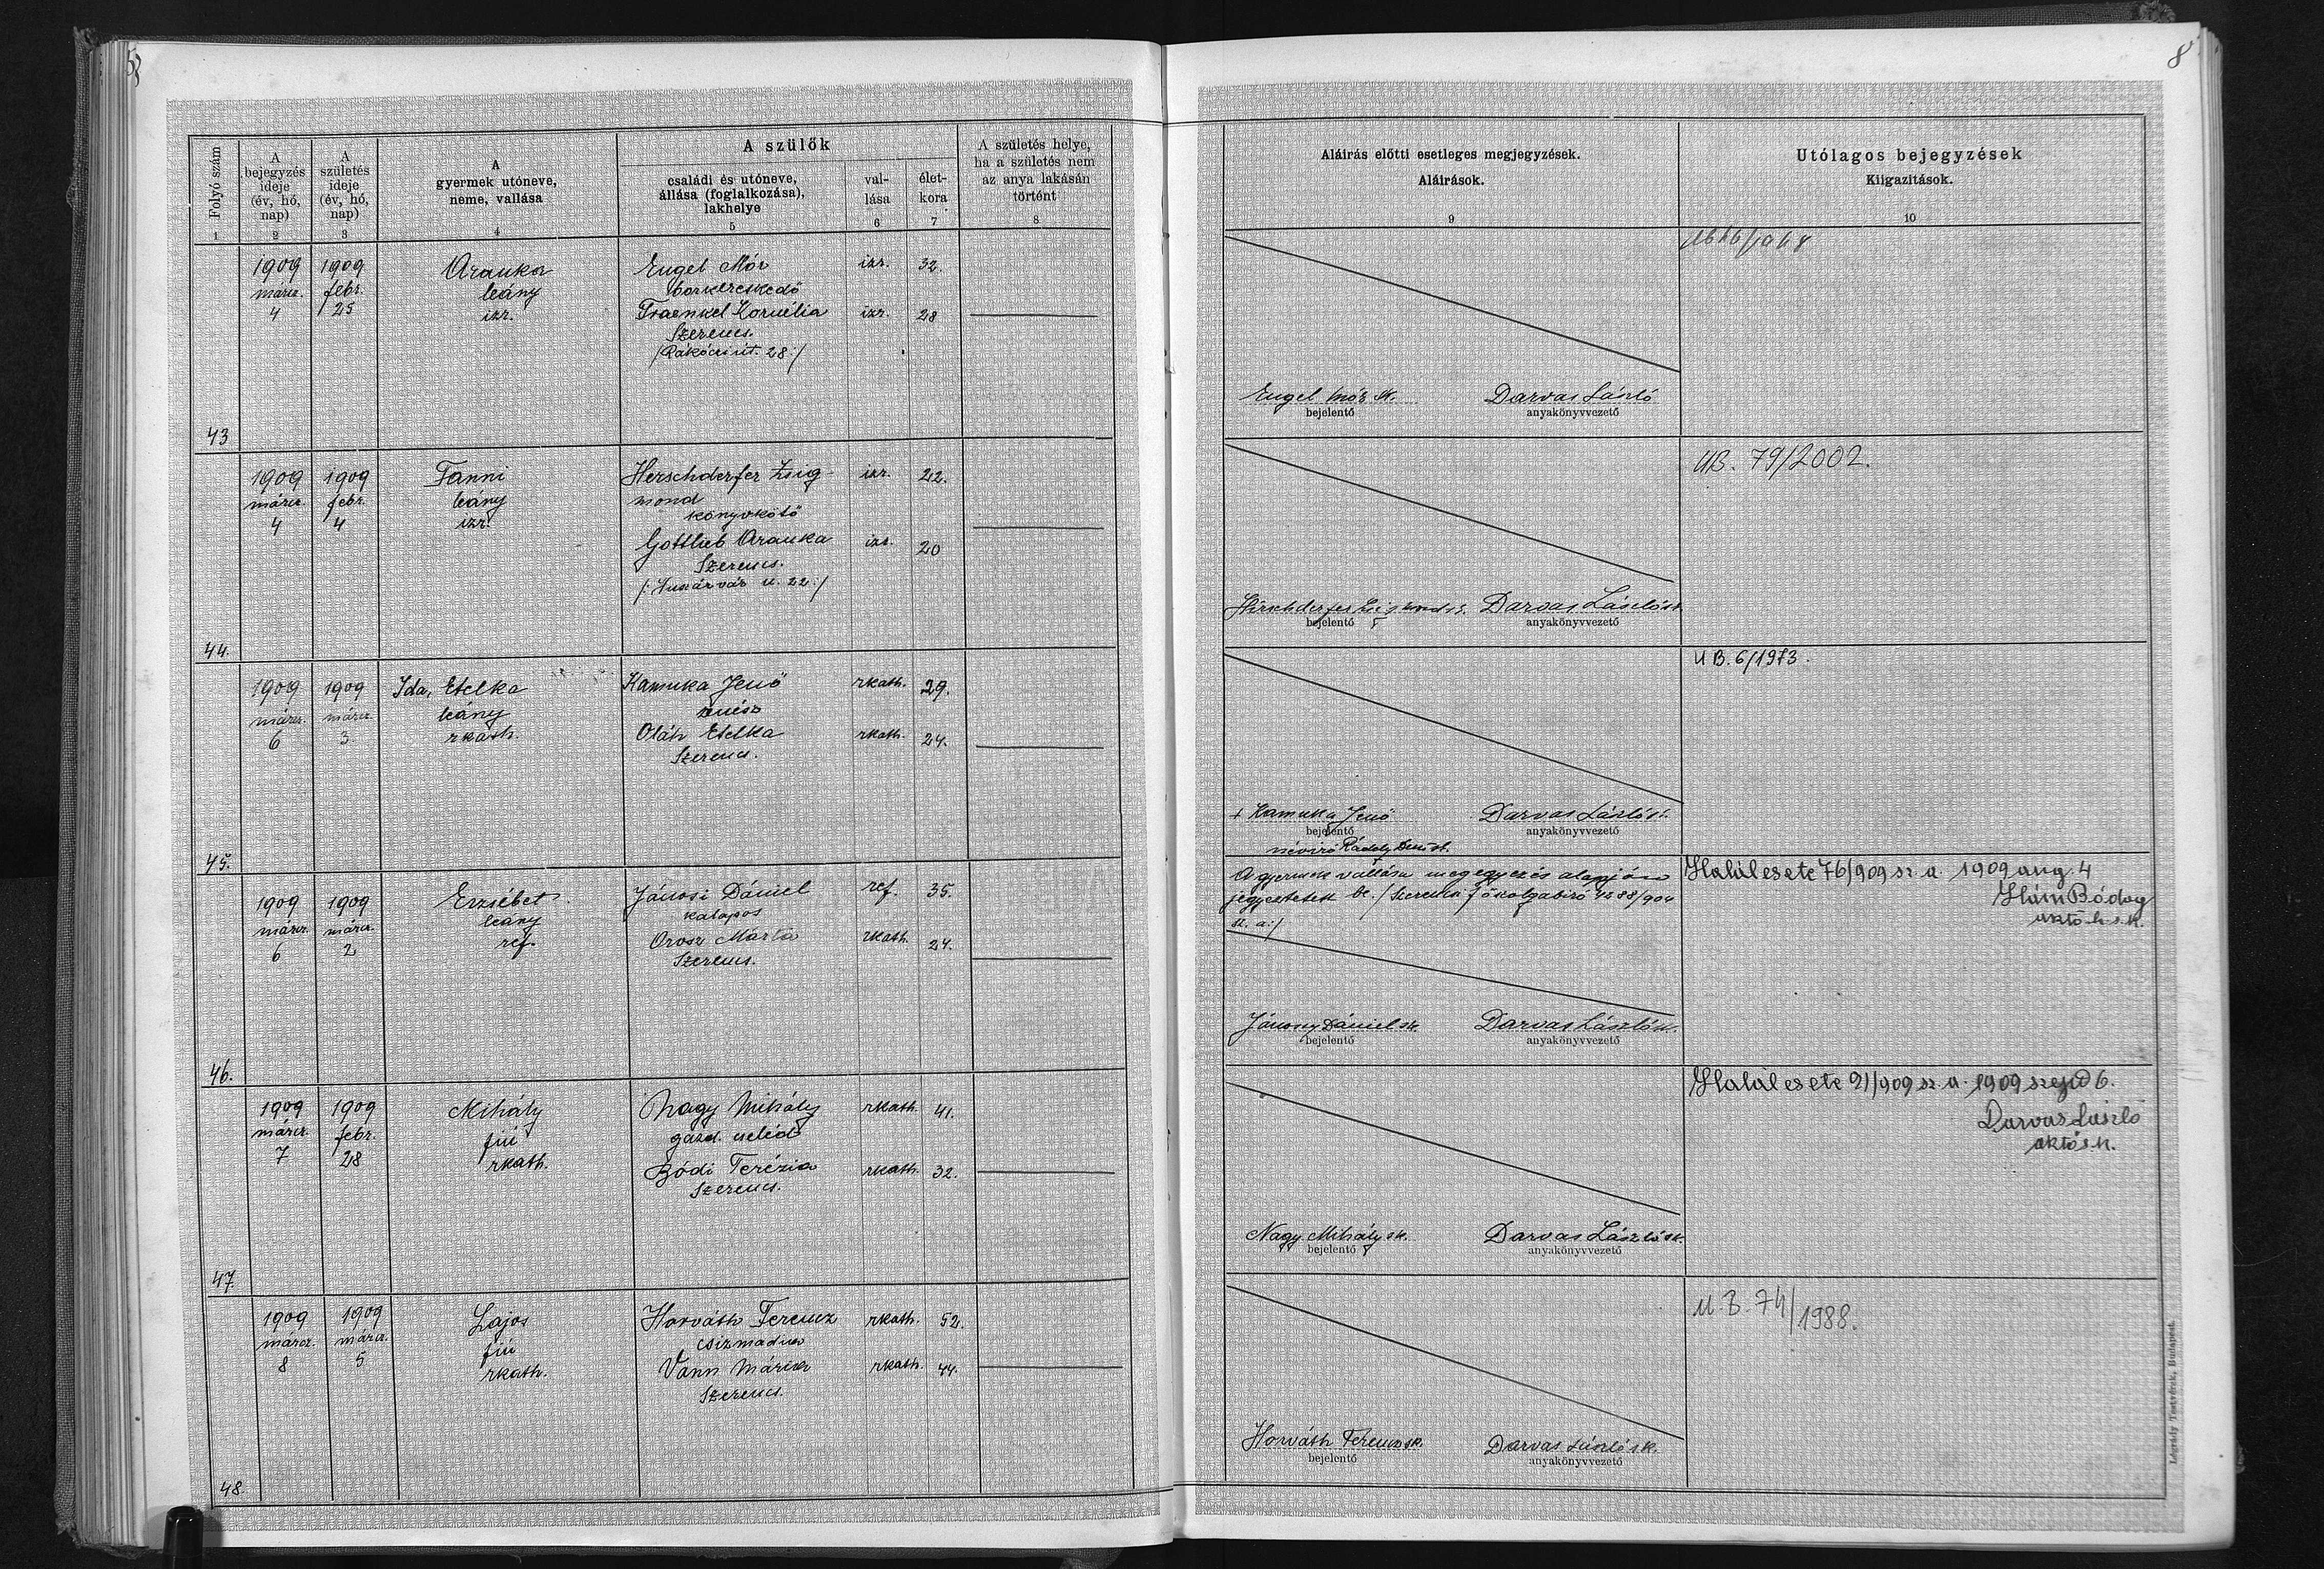 8
Folyó szám
A bejegyzés ideje (év, hó, nap)
A születés ideje (év, hó, nap)
A gyermek utóneve, neme, vallása
A szülők
családi és utóneve, állása (foglalkozása), lakhelye
val-lása
élet-kora
A születés helye, ha a születés nem az anya lakásán történt
Aláirás előtti esetleges megjegyzések.
Aláirások.
Utólagos bejegyzések
Kiigazítások.
1 2 3 4 5 6 7 8 9 10
43
1909 márcz. 4
1909 febr. 25
Aranka
leány
izr.
Engel Mór izr. 32.
borkereskedő
Fraenkel Kornélia izr. 28
Szerencs.
/Rákóczi út. 28:/
Engel Mór sk.
bejelentő
Darvas László
anyakönyvvezető
44.
1909 márcz. 4
1909 febr. 4
Fanni
leány
izr.
Herschderfer Zsig- izr. 22.
mond
könyvkötő
Gottlieb Aranka izr. 20
Szerencs.
/: Huszárvár u. 22:/
bejelentő
Darvas László sk.
anyakönyvvezető
UB. 79/2002.
45.
1909 márcz. 6
1909 márcz. 3
Ida, Etelka
leány
rkath.
Kamuka Jenő rkath. 29.
zenész
Oláh Etelka rkath. 24.
Szerencs.
+ Kamuka Jenő
bejelentő
névíró
Darvas László sk.
anyakönyvvezető
UB. 6/1973.
46.
1909 márcz. 6
1909 márcz. 2
Erzsébet
leány
ref.
Jánosi Dániel ref. 35.
kalapos
Orosz Márta rkath. 24.
Szerencs.
A gyermek vallása megegyezés alapján
jegyeztetett be. /: Szerencsi főszolgabíró 4288/904
sz. a:/
Jánosy Dániel sk.
bejelentő
Darvas László sk.
anyakönyvvezető
Halálesete 76/909 sz. a. 1909 aug. 4
47.
1909 márcz. 7
1909 febr. 28
Mihály
fiú
rkath.
Nagy Mihály rkath. 41.
gazd. cseléd
Bódi Terézia rkath. 32.
Szerencs.
Nagy Mihály sk.
bejelentő
Darvas László sk.
anyakönyvvezető
Halálesete 91/909 sz. a. 1909 szept 6.
Darvas László
aktő s.k.
48.
1909 márcz. 8
1909 márcz. 5
Lajos
fiú
rkath.
Horváth Ferencz rkath. 52.
csizmadia
Vann Mária rkath. 44.
Szerencs.
Horváth Ferencz sk.
bejelentő
Darvas László sk.
anyakönyvvezető
U.B. 74/1988.
Légrády Testvérek, Budapest.